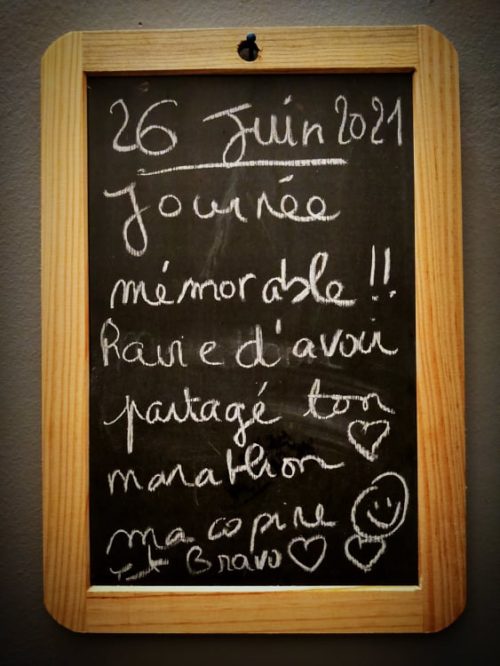 26 Juin 2021
Journée
mémorable !!
Ravie d'avoir
partagé ton
marathon
ma copine
et Bravo